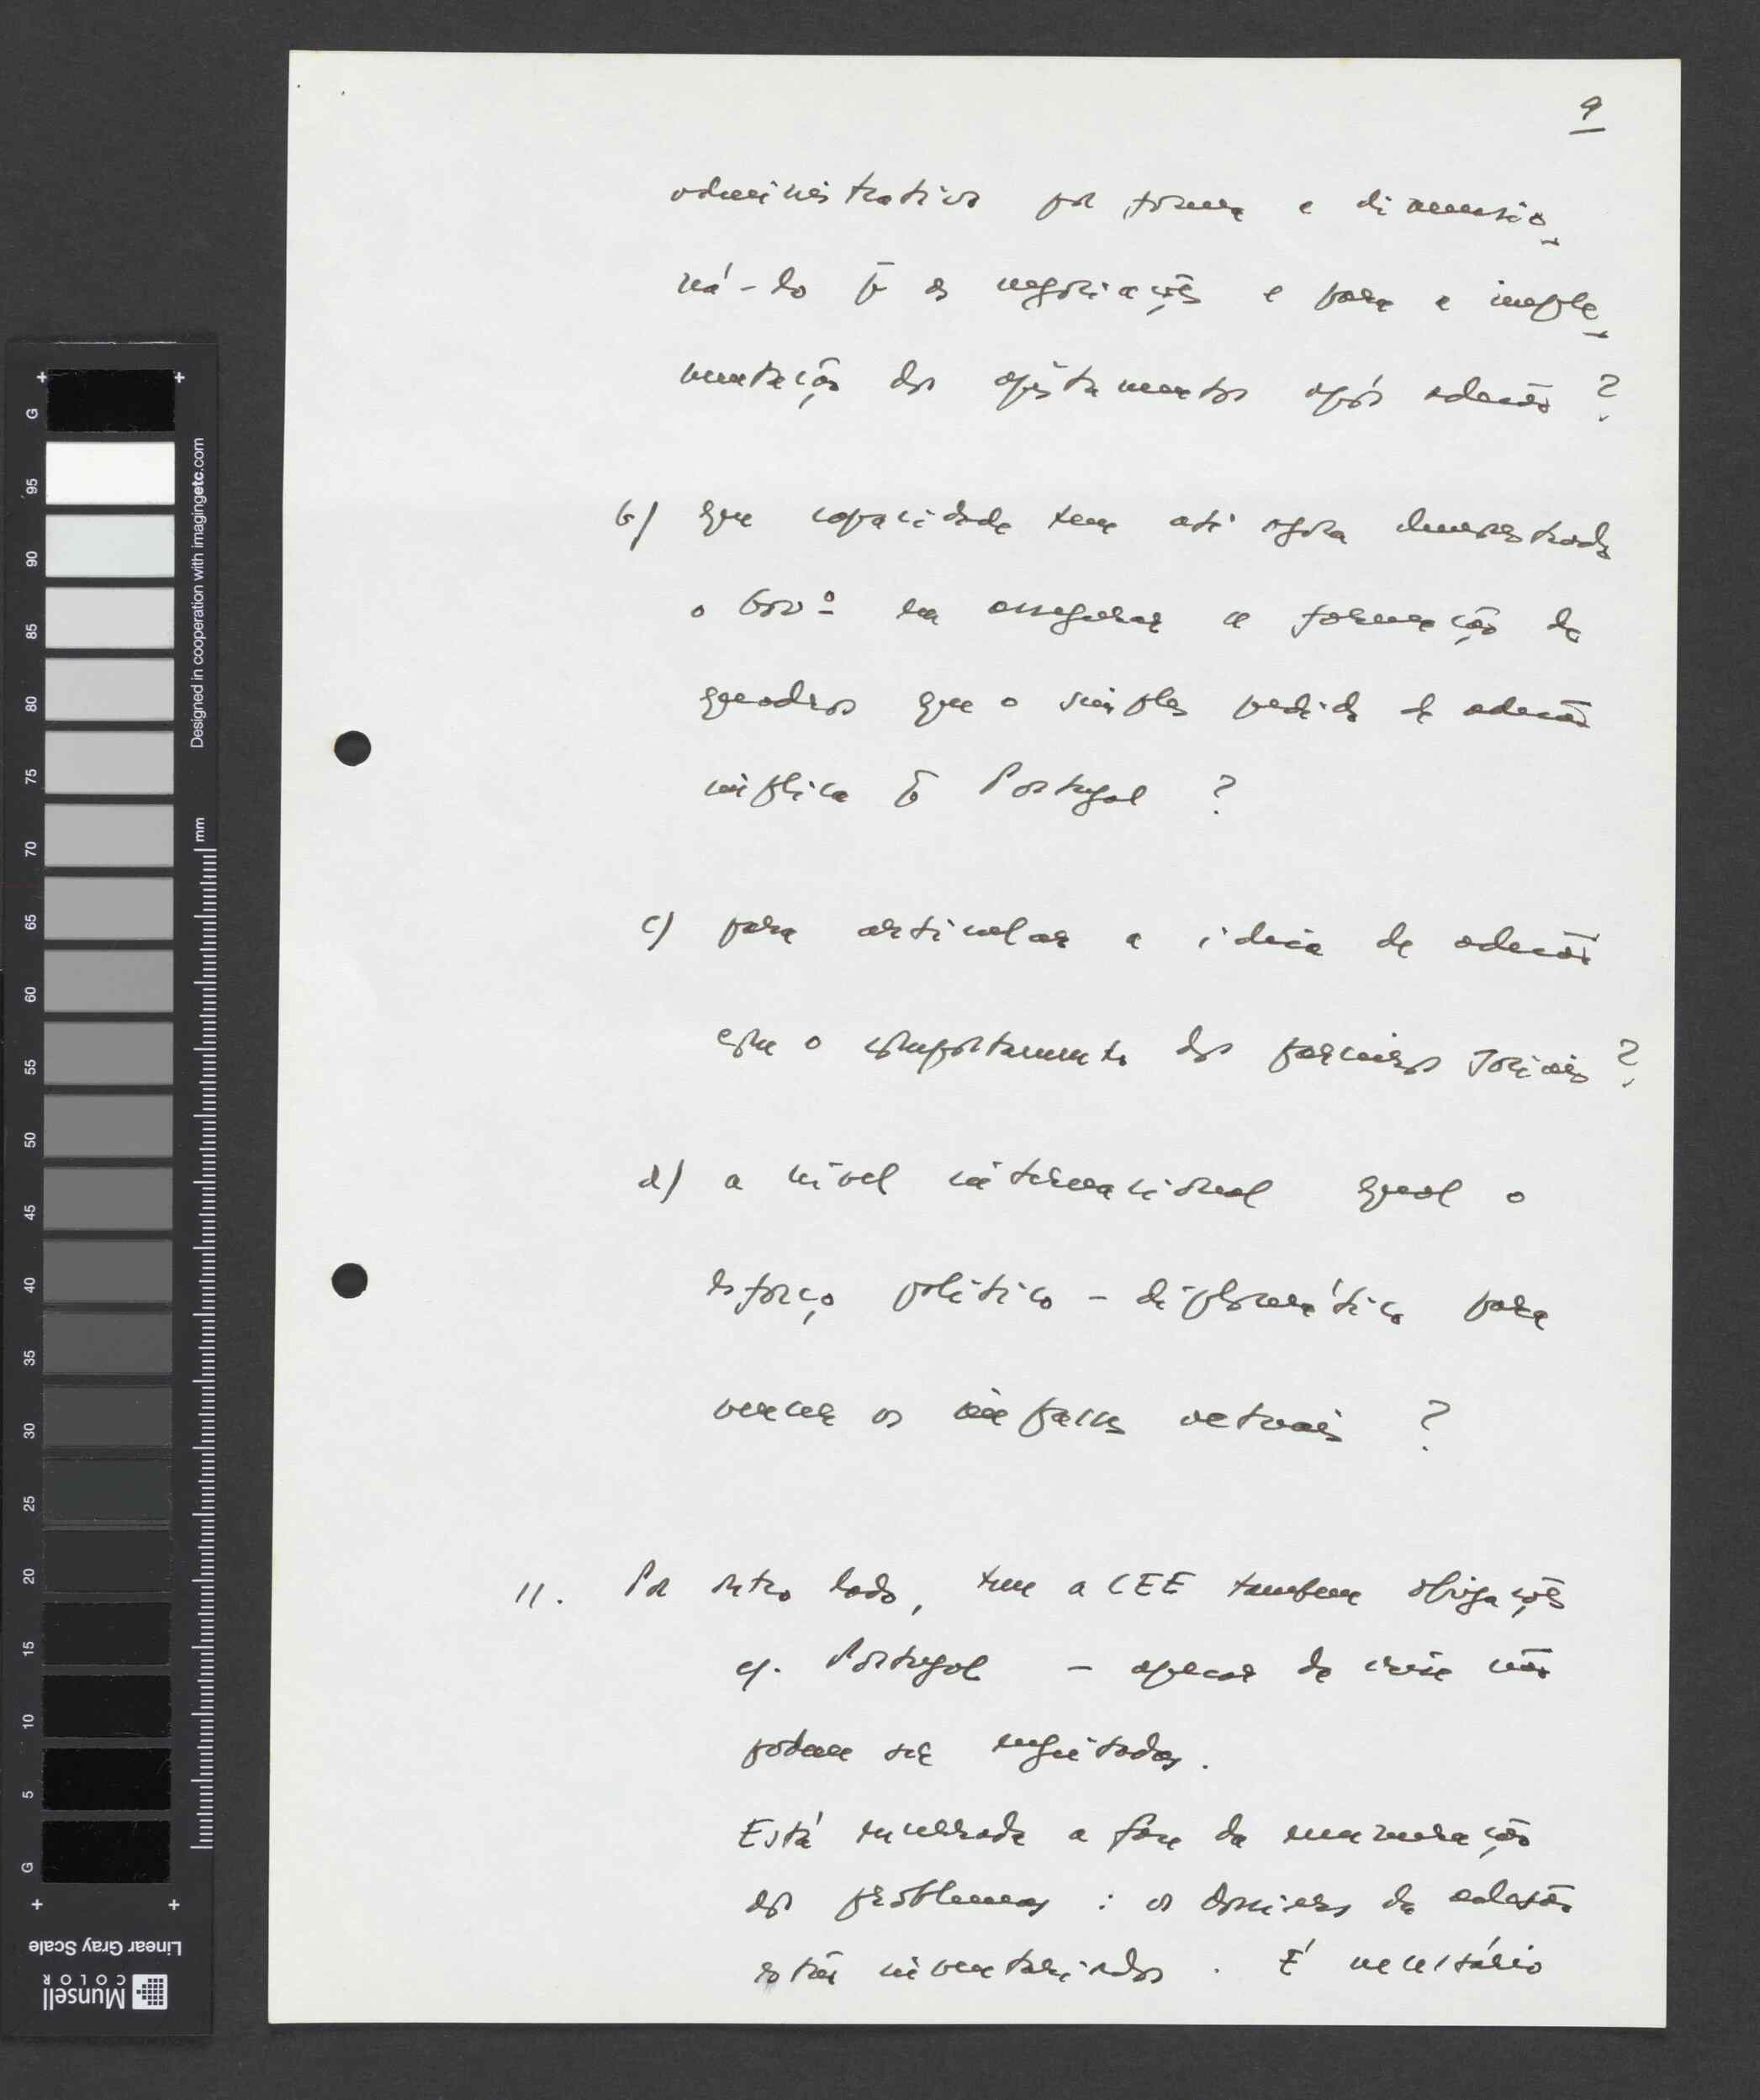 9
administrativo por forma a dimensio-
ná-lo p̄ as negociações e para a imple-
mentação dos ajustamentos após adesão?
b) que capacidade tem até agora demonstrado
o Govº em assegurar a formação de
quadros que o simples pedido de adesão
implica p̄ Portugal?
c) para articular a ideia de adesão
com o comportamento dos parceiros sociais?
d) a nível internacional qual o
esforço político-diplomático para
vencer os impasses actuais?
11. Por outro lado, tem a CEE também obrigações
c/. Portugal - apesar da crise não
podem ser enjeitadas.
Está encerrada a fase da enumeração
dos problemas: os dossiers da adesão
estão inventariados. É necessário
G
95
90
85
80
75
70
65
60
55
50
45
40
35
30
25
20
15
10
5
G
Designed in cooperation with imagingetc.com
mm
Linear Gray Scale
Munsell
COLOR